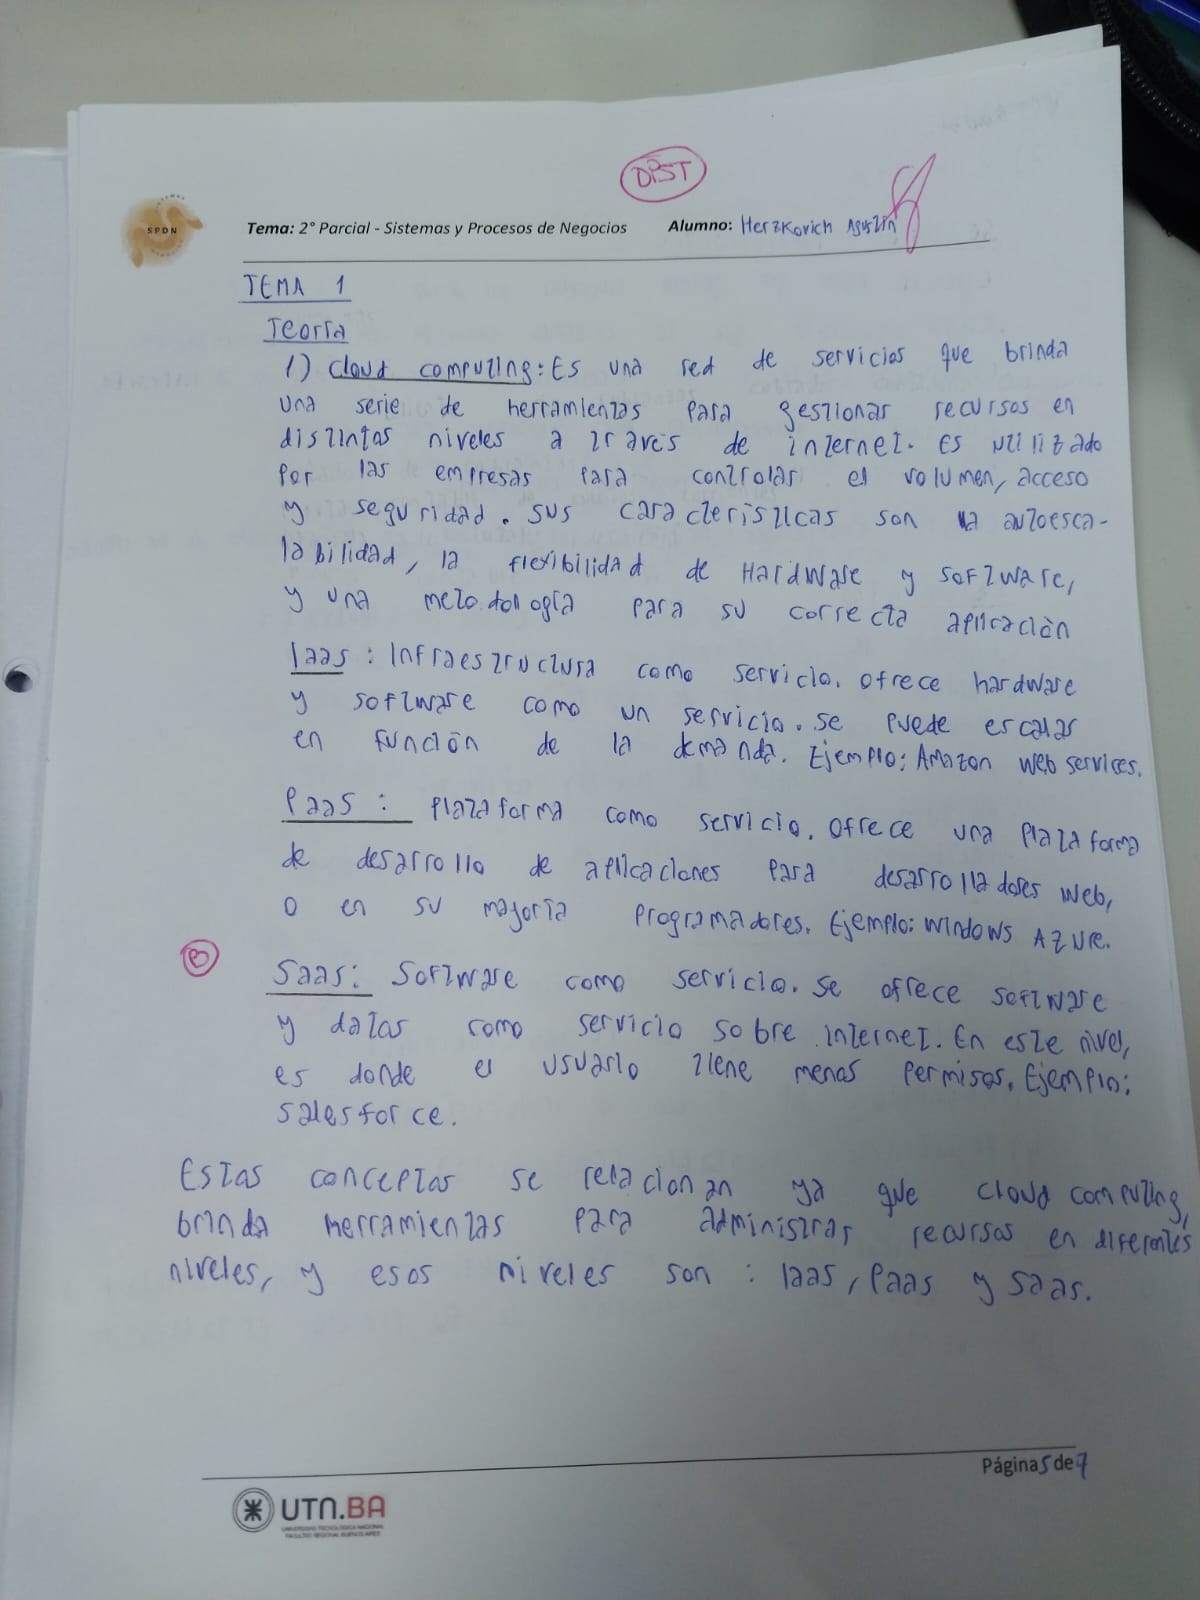 DIST
SPDN
Tema: 2° Parcial - Sistemas y Procesos de Negocios Alumno: Herzkovich Agustín
TEMA 1
Teoría
1) Cloud computing: Es una red de servicios que brinda
una serie de herramientas para gestionar recursos en
distintos niveles a través de internet. Es utilizado
por las empresas para controlar el volumen, acceso
y seguridad. sus características son la autoesca-
labilidad, la flexibilidad de Hardware y software,
y una metodología para su correcta aplicación
Iaas : Infraestructura como servicio. ofrece hardware
y software como un servicio. se puede escalar
en función de la demanda. Ejemplo: Amazon web services.
Paas : Plataforma como servicio. ofrece una plataforma
de desarrollo de aplicaciones para desarrolladores web,
o en su mayoría programadores. Ejemplo: Windows AZURE.
B
Saas: Software como servicio. se ofrece software
y datos como servicio sobre internet. En este nivel,
es donde el usuario tiene menos permisos. Ejemplo:
salesforce.
Estos conceptos se relacionan ya que cloud computing,
brinda herramientas para administrar recursos en diferentes
niveles, y esos niveles son : Iaas, Paas y saas.
Página 5 de 7
UTN.BA
UNIVERSIDAD TECNOLÓGICA NACIONAL
FACULTAD REGIONAL BUENOS AIRES